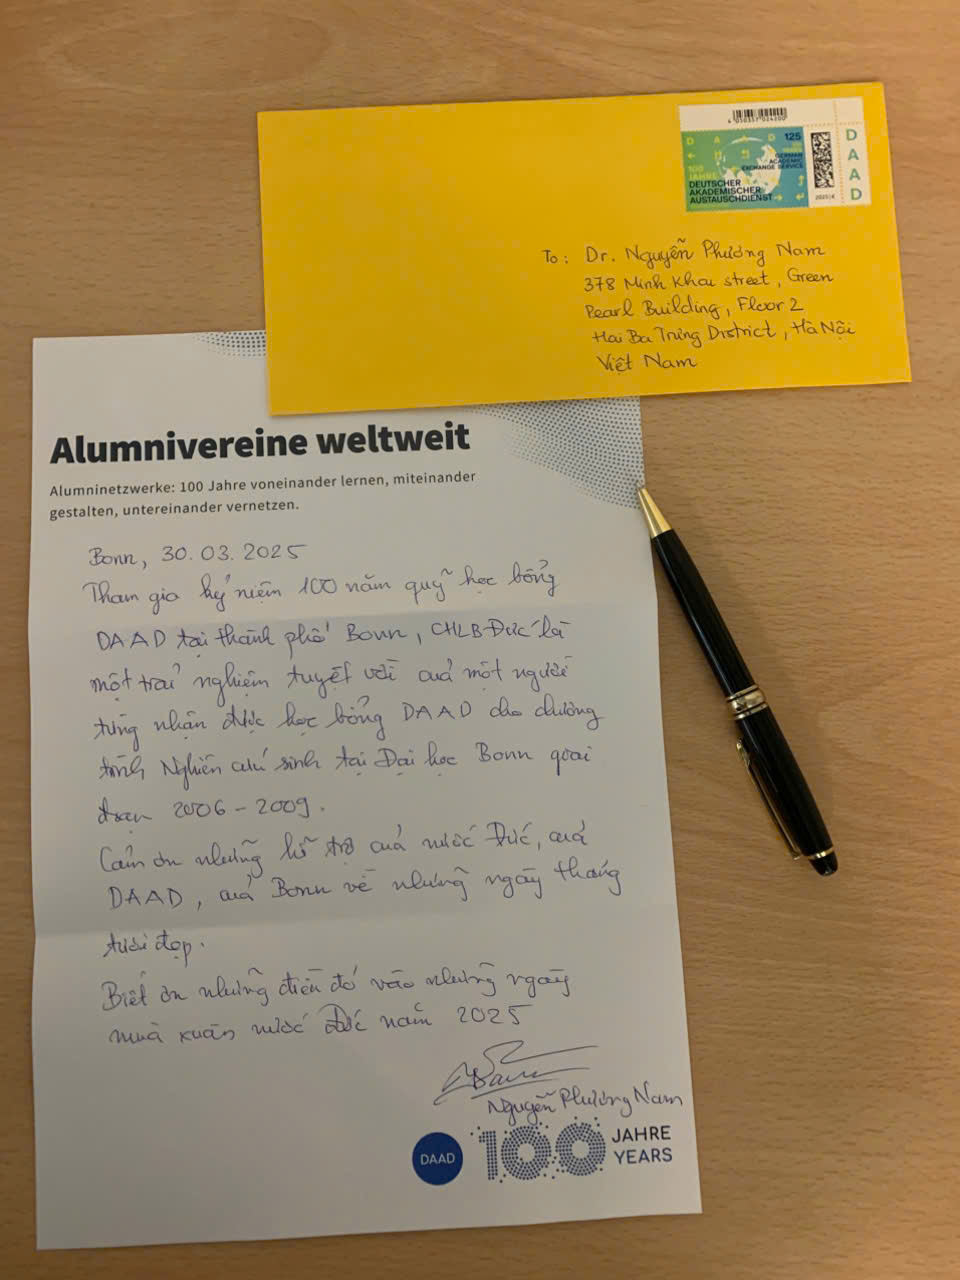 4 050357 024200
D A A D
125
100
JAHRE
GERMAN
ACADEMIC
EXCHANGE SERVICE
DEUTSCHER
AKADEMISCHER
AUSTAUSCHDIENST
2025|4
D
A
A
D
To: Dr. Nguyễn Phương Nam
378 Minh Khai street, Green
Pearl Building, Floor 2
Hai Ba Trưng District, Hà Nội
Việt Nam
Alumnivereine weltweit
Alumninetzwerke: 100 Jahre voneinander lernen, miteinander
gestalten, untereinander vernetzen.
Bonn, 30.03.2025
Tham gia kỷ niệm 100 năm quỹ học bổng
DAAD tại thành phố Bonn, CHLB Đức là
một trải nghiệm tuyệt vời của một người
từng nhận được học bổng DAAD cho chương
trình Nghiên cứu sinh tại Đại học Bonn giai
đoạn 2006-2009.
Cảm ơn những hỗ trợ của nước Đức, của
DAAD, của Bonn về những ngày tháng
tươi đẹp.
Biết ơn những điều đó vào những ngày
mùa xuân nước Đức năm 2025
Nguyễn Phương Nam
DAAD
100 JAHRE
YEARS